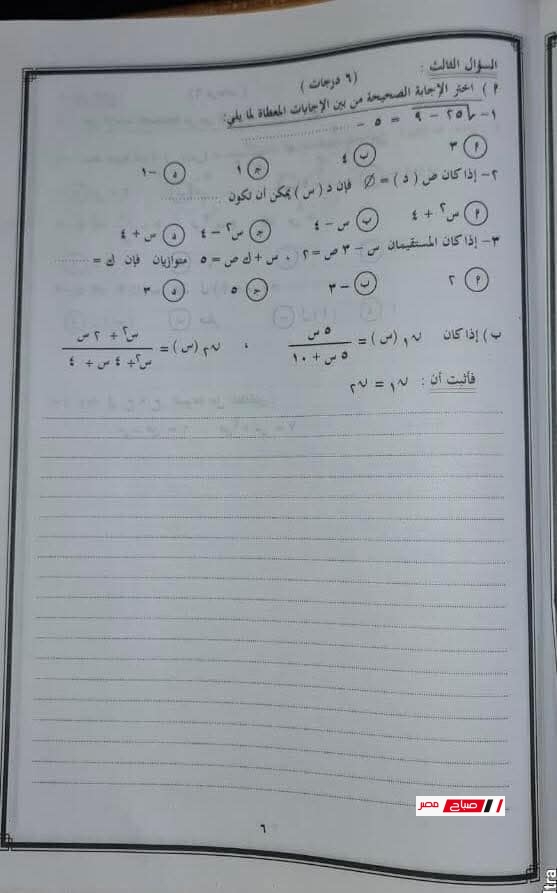 السؤال الثالث :
(٦ درجات )
٢ ) اختر الإجابة الصحيحة من بين الإجابات المعطاة لما يلي:
١- √٢٥ - ٩ = ٥ - ..............
٢ ٣ ب ٤ ج ١ د -١
٢- إذا كان ص ( د ) = ∅ فإن د ( س ) يمكن أن تكون ..............
٢ س٢ + ٤ ب س - ٤ ج س٢ - ٤ د س + ٤
٣- إذا كان المستقيمان س - ٣ ص = ٢ ، س + ك ص = ٥ متوازيان فإن ك = .........
٢ ٢ ب -٣ ج ٥ د ٣
ب ) إذا كان ن١ (س) = ٥ س / ٥ س + ١٠ ، ن٢ (س) = س٢ + ٢ س / س٢ + ٤ س + ٤
فأثبت أن : ن١ = ن٢
صباح مصر
٦
ira